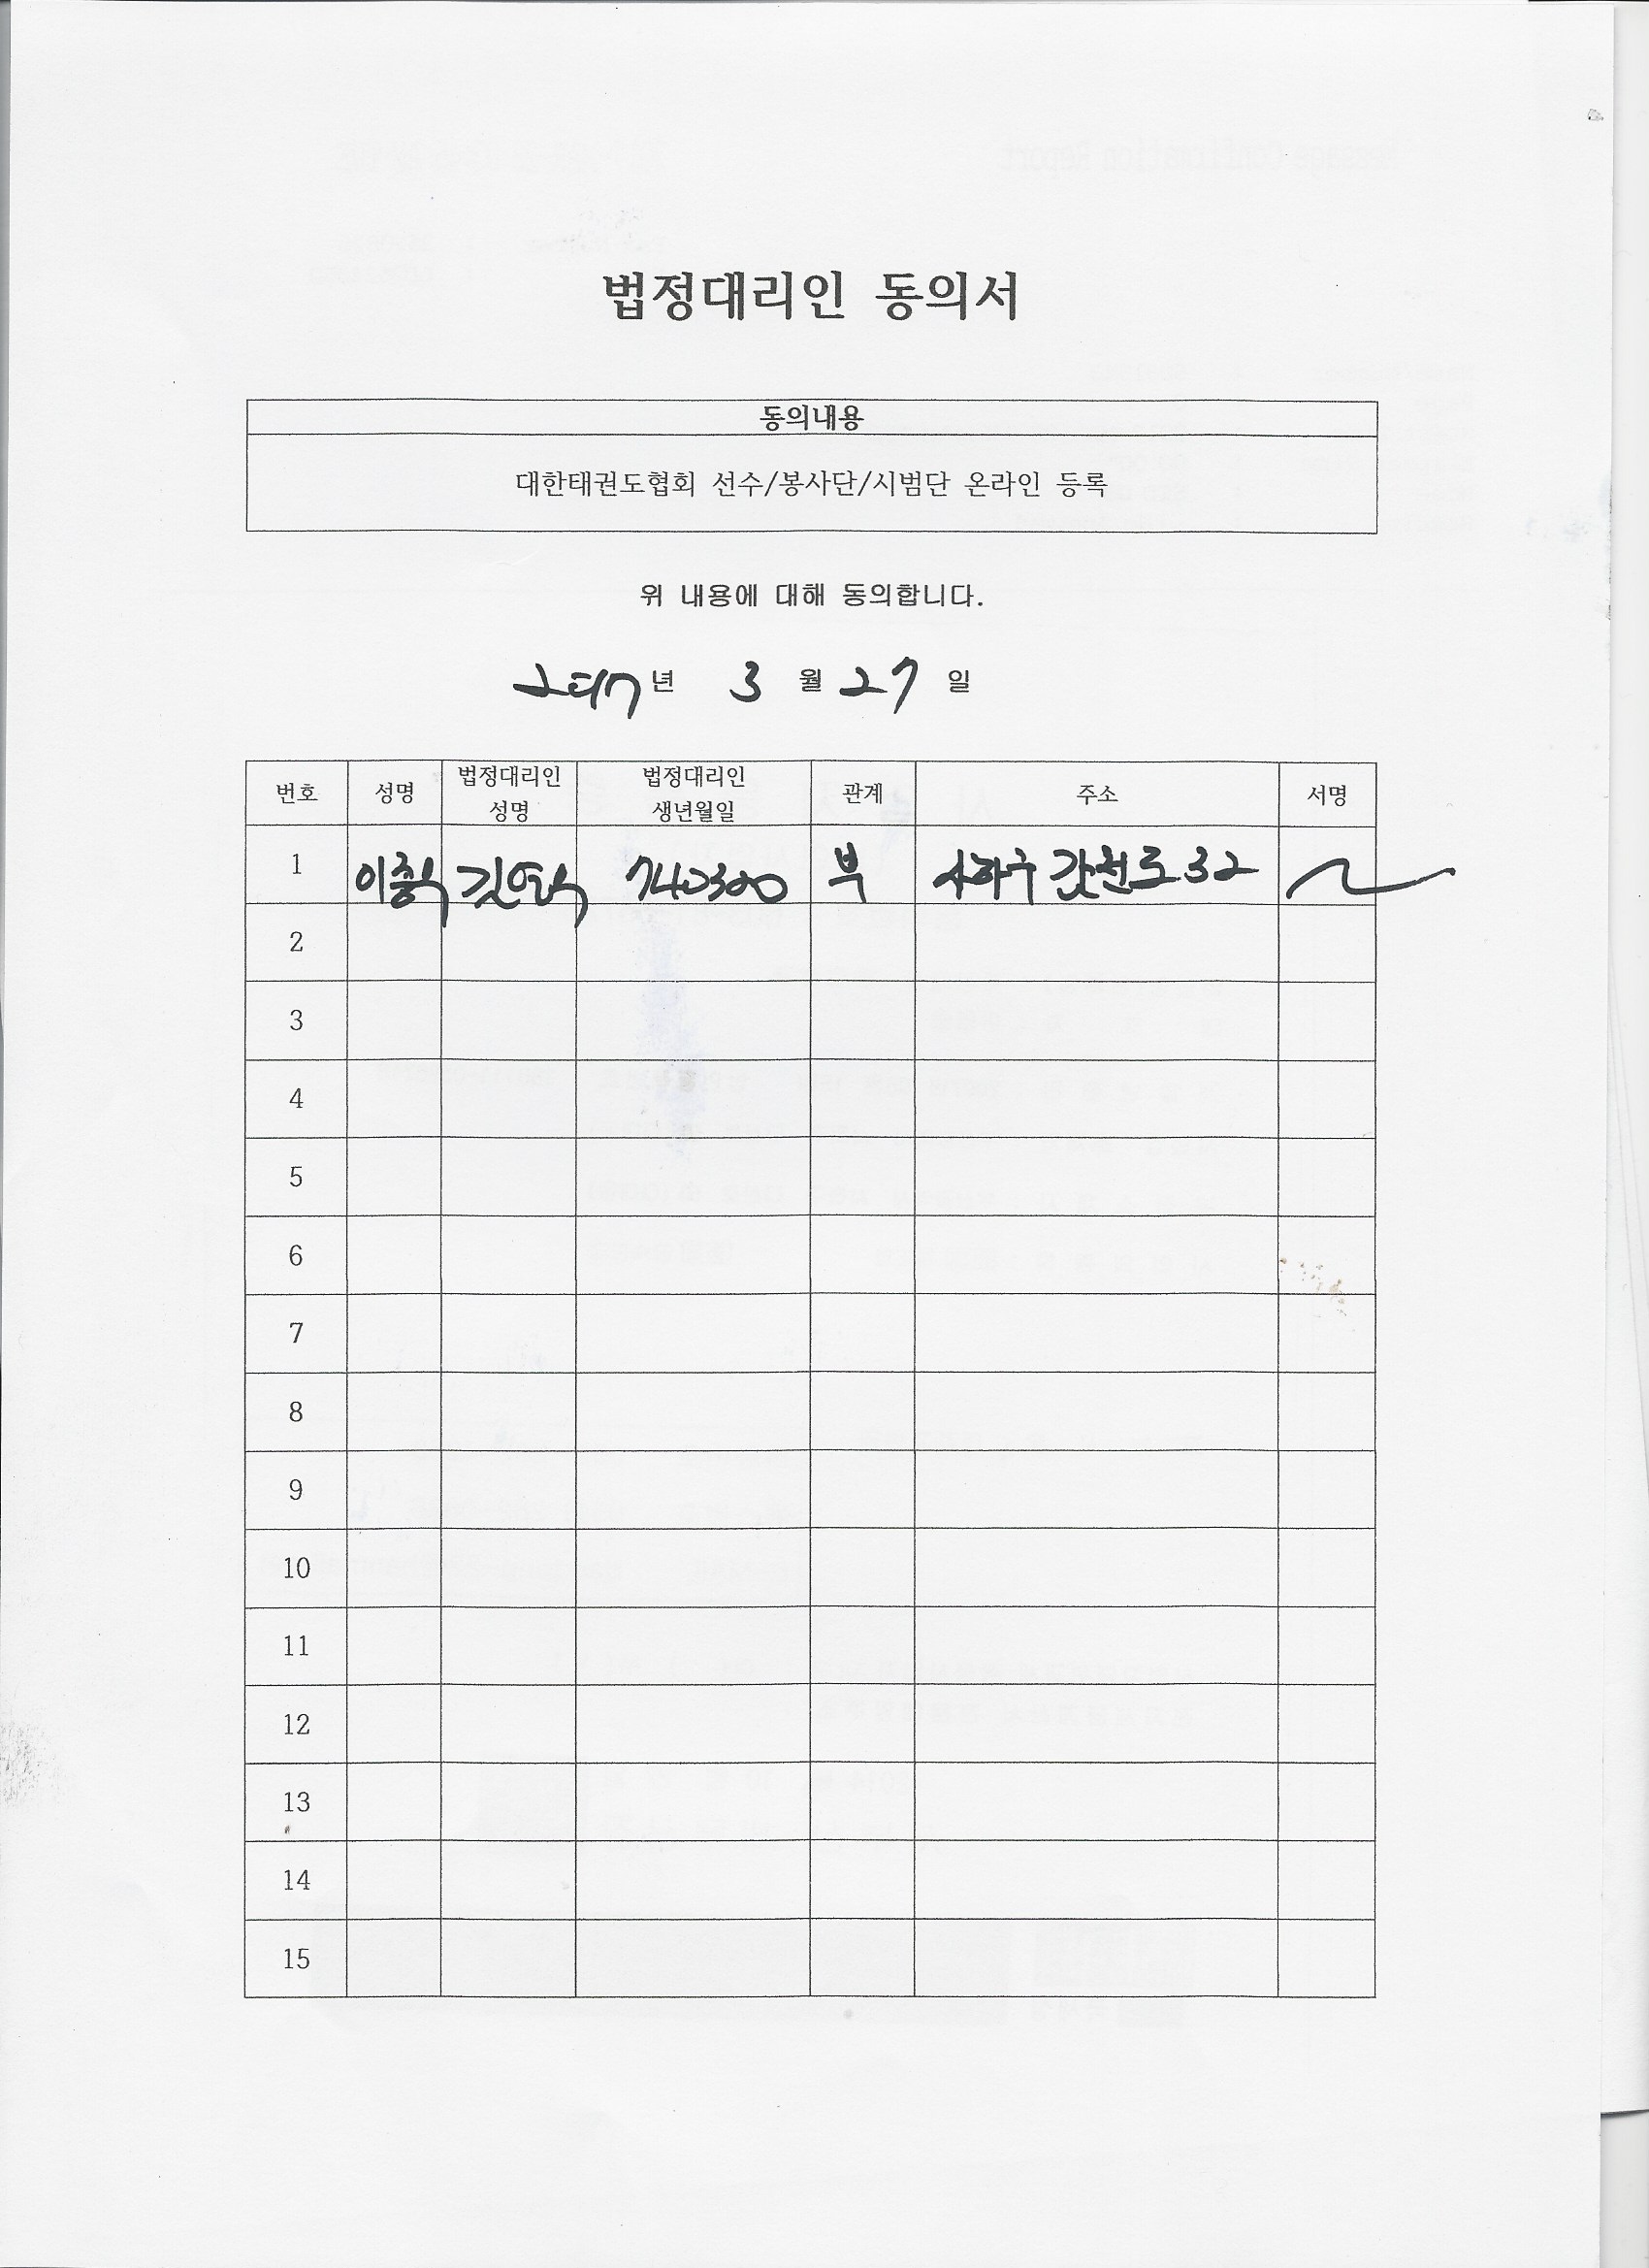 법정대리인 동의서
동의내용
대한태권도협회 선수/봉사단/시범단 온라인 등록
위 내용에 대해 동의합니다.
2017년 3 월 27 일
번호 성명 법정대리인 성명 법정대리인 생년월일 관계 주소 서명
1 부 사하구 로 32
2
3
4
5
6
7
8
9
10
11
12
13
14
15